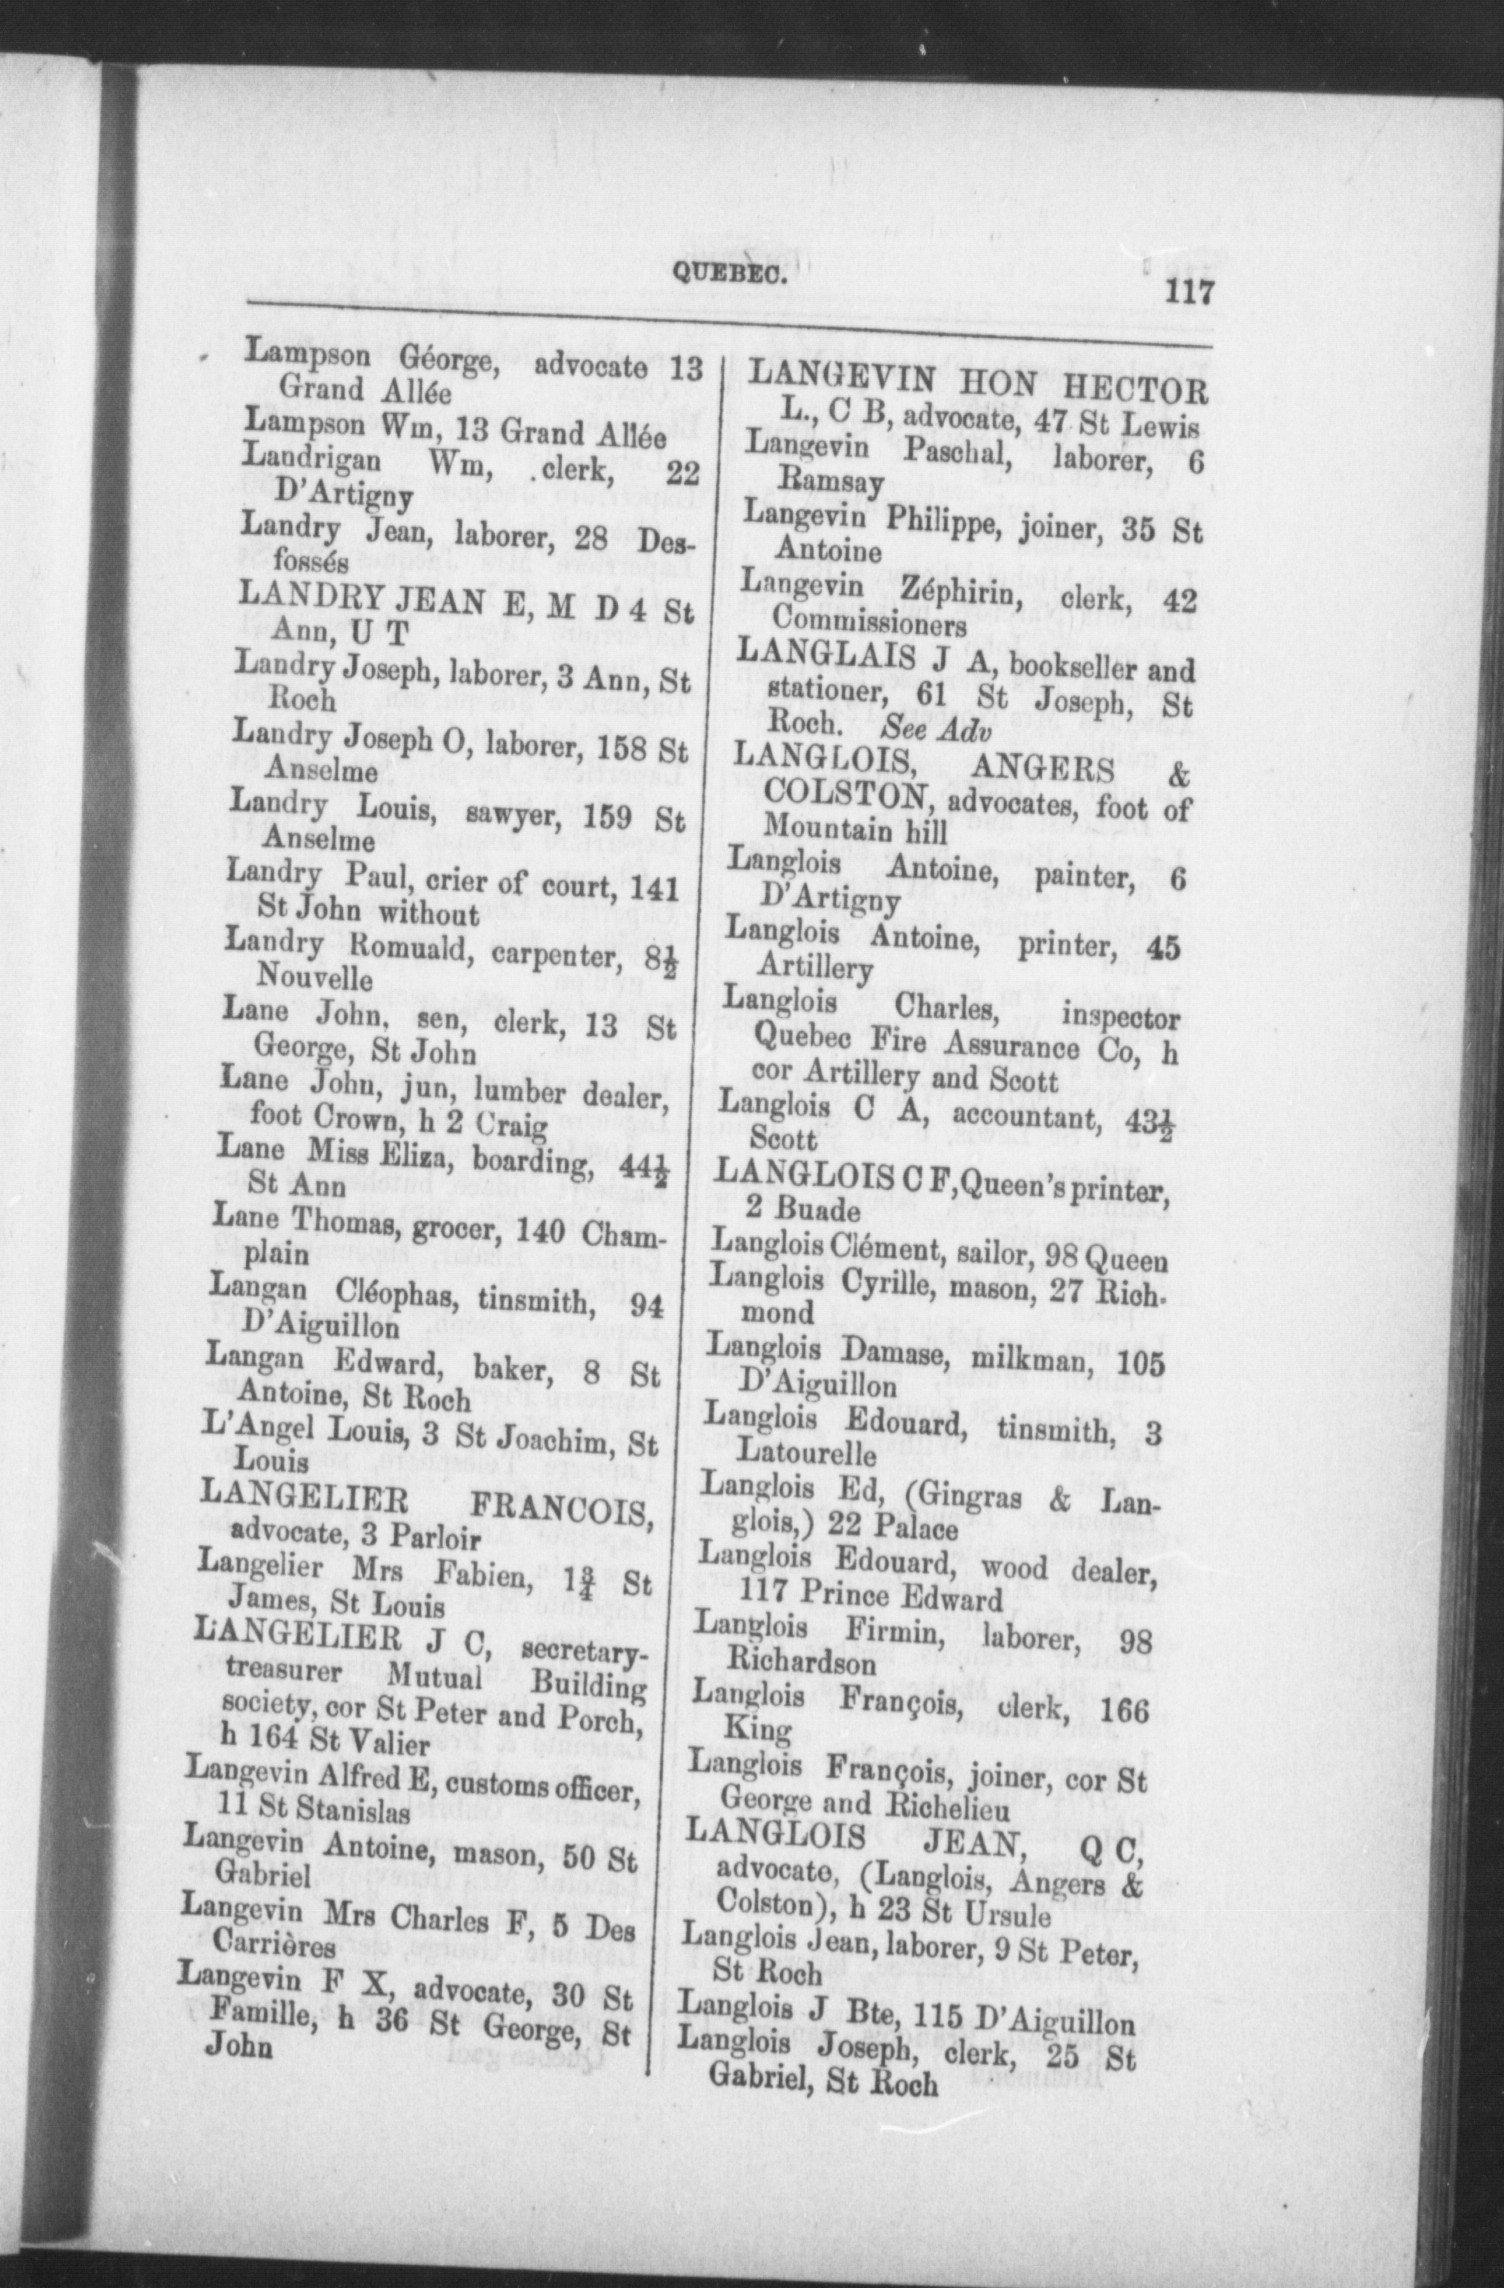 QUEBEC.
117
Lampson Géorge, advocate 13
Grand Allée
Lampson Wm, 13 Grand Allée
Landrigan Wm, clerk, 22
D'Artigny
Landry Jean, laborer, 28 Des-
fossés
LANDRY JEAN E, M D 4 St
Ann, U T
Landry Joseph, laborer, 3 Ann, St
Roch
Landry Joseph O, laborer, 158 St
Anselme
Landry Louis, sawyer, 159 St
Anselme
Landry Paul, crier of court, 141
St John without
Landry Romuald, carpenter, 8½
Nouvelle
Lane John, sen, clerk, 13 St
George, St John
Lane John, jun, lumber dealer,
foot Crown, h 2 Craig
Lane Miss Eliza, boarding, 44½
St Ann
Lane Thomas, grocer, 140 Cham-
plain
Langan Cléophas, tinsmith, 94
D'Aiguillon
Langan Edward, baker, 8 St
Antoine, St Roch
L'Angel Louis, 3 St Joachim, St
Louis
LANGELIER FRANCOIS,
advocate, 3 Parloir
Langelier Mrs Fabien, 1¾ St
James, St Louis
LANGELIER J C, secretary-
treasurer Mutual Building
society, cor St Peter and Porch,
h 164 St Valier
Langevin Alfred E, customs officer,
11 St Stanislas
Langevin Antoine, mason, 50 St
Gabriel
Langevin Mrs Charles F, 5 Des
Carrières
Langevin F X, advocate, 30 St
Famille, h 36 St George, St
John
LANGEVIN HON HECTOR
L., C B, advocate, 47 St Lewis
Langevin Paschal, laborer, 6
Ramsay
Langevin Philippe, joiner, 35 St
Antoine
Langevin Zéphirin, clerk, 42
Commissioners
LANGLAIS J A, bookseller and
stationer, 61 St Joseph, St
Roch. See Adv
LANGLOIS, ANGERS &
COLSTON, advocates, foot of
Mountain hill
Langlois Antoine, painter, 6
D'Artigny
Langlois Antoine, printer, 45
Artillery
Langlois Charles, inspector
Quebec Fire Assurance Co, h
cor Artillery and Scott
Langlois C A, accountant, 43½
Scott
LANGLOIS C F, Queen's printer,
2 Buade
Langlois Clément, sailor, 98 Queen
Langlois Cyrille, mason, 27 Rich-
mond
Langlois Damase, milkman, 105
D'Aiguillon
Langlois Edouard, tinsmith, 3
Latourelle
Langlois Ed, (Gingras & Lan-
glois,) 22 Palace
Langlois Edouard, wood dealer,
117 Prince Edward
Langlois Firmin, laborer, 98
Richardson
Langlois François, clerk, 166
King
Langlois François, joiner, cor St
George and Richelieu
LANGLOIS JEAN, Q C,
advocate, (Langlois, Angers &
Colston), h 23 St Ursule
Langlois Jean, laborer, 9 St Peter,
St Roch
Langlois J Bte, 115 D'Aiguillon
Langlois Joseph, clerk, 25 St
Gabriel, St Roch